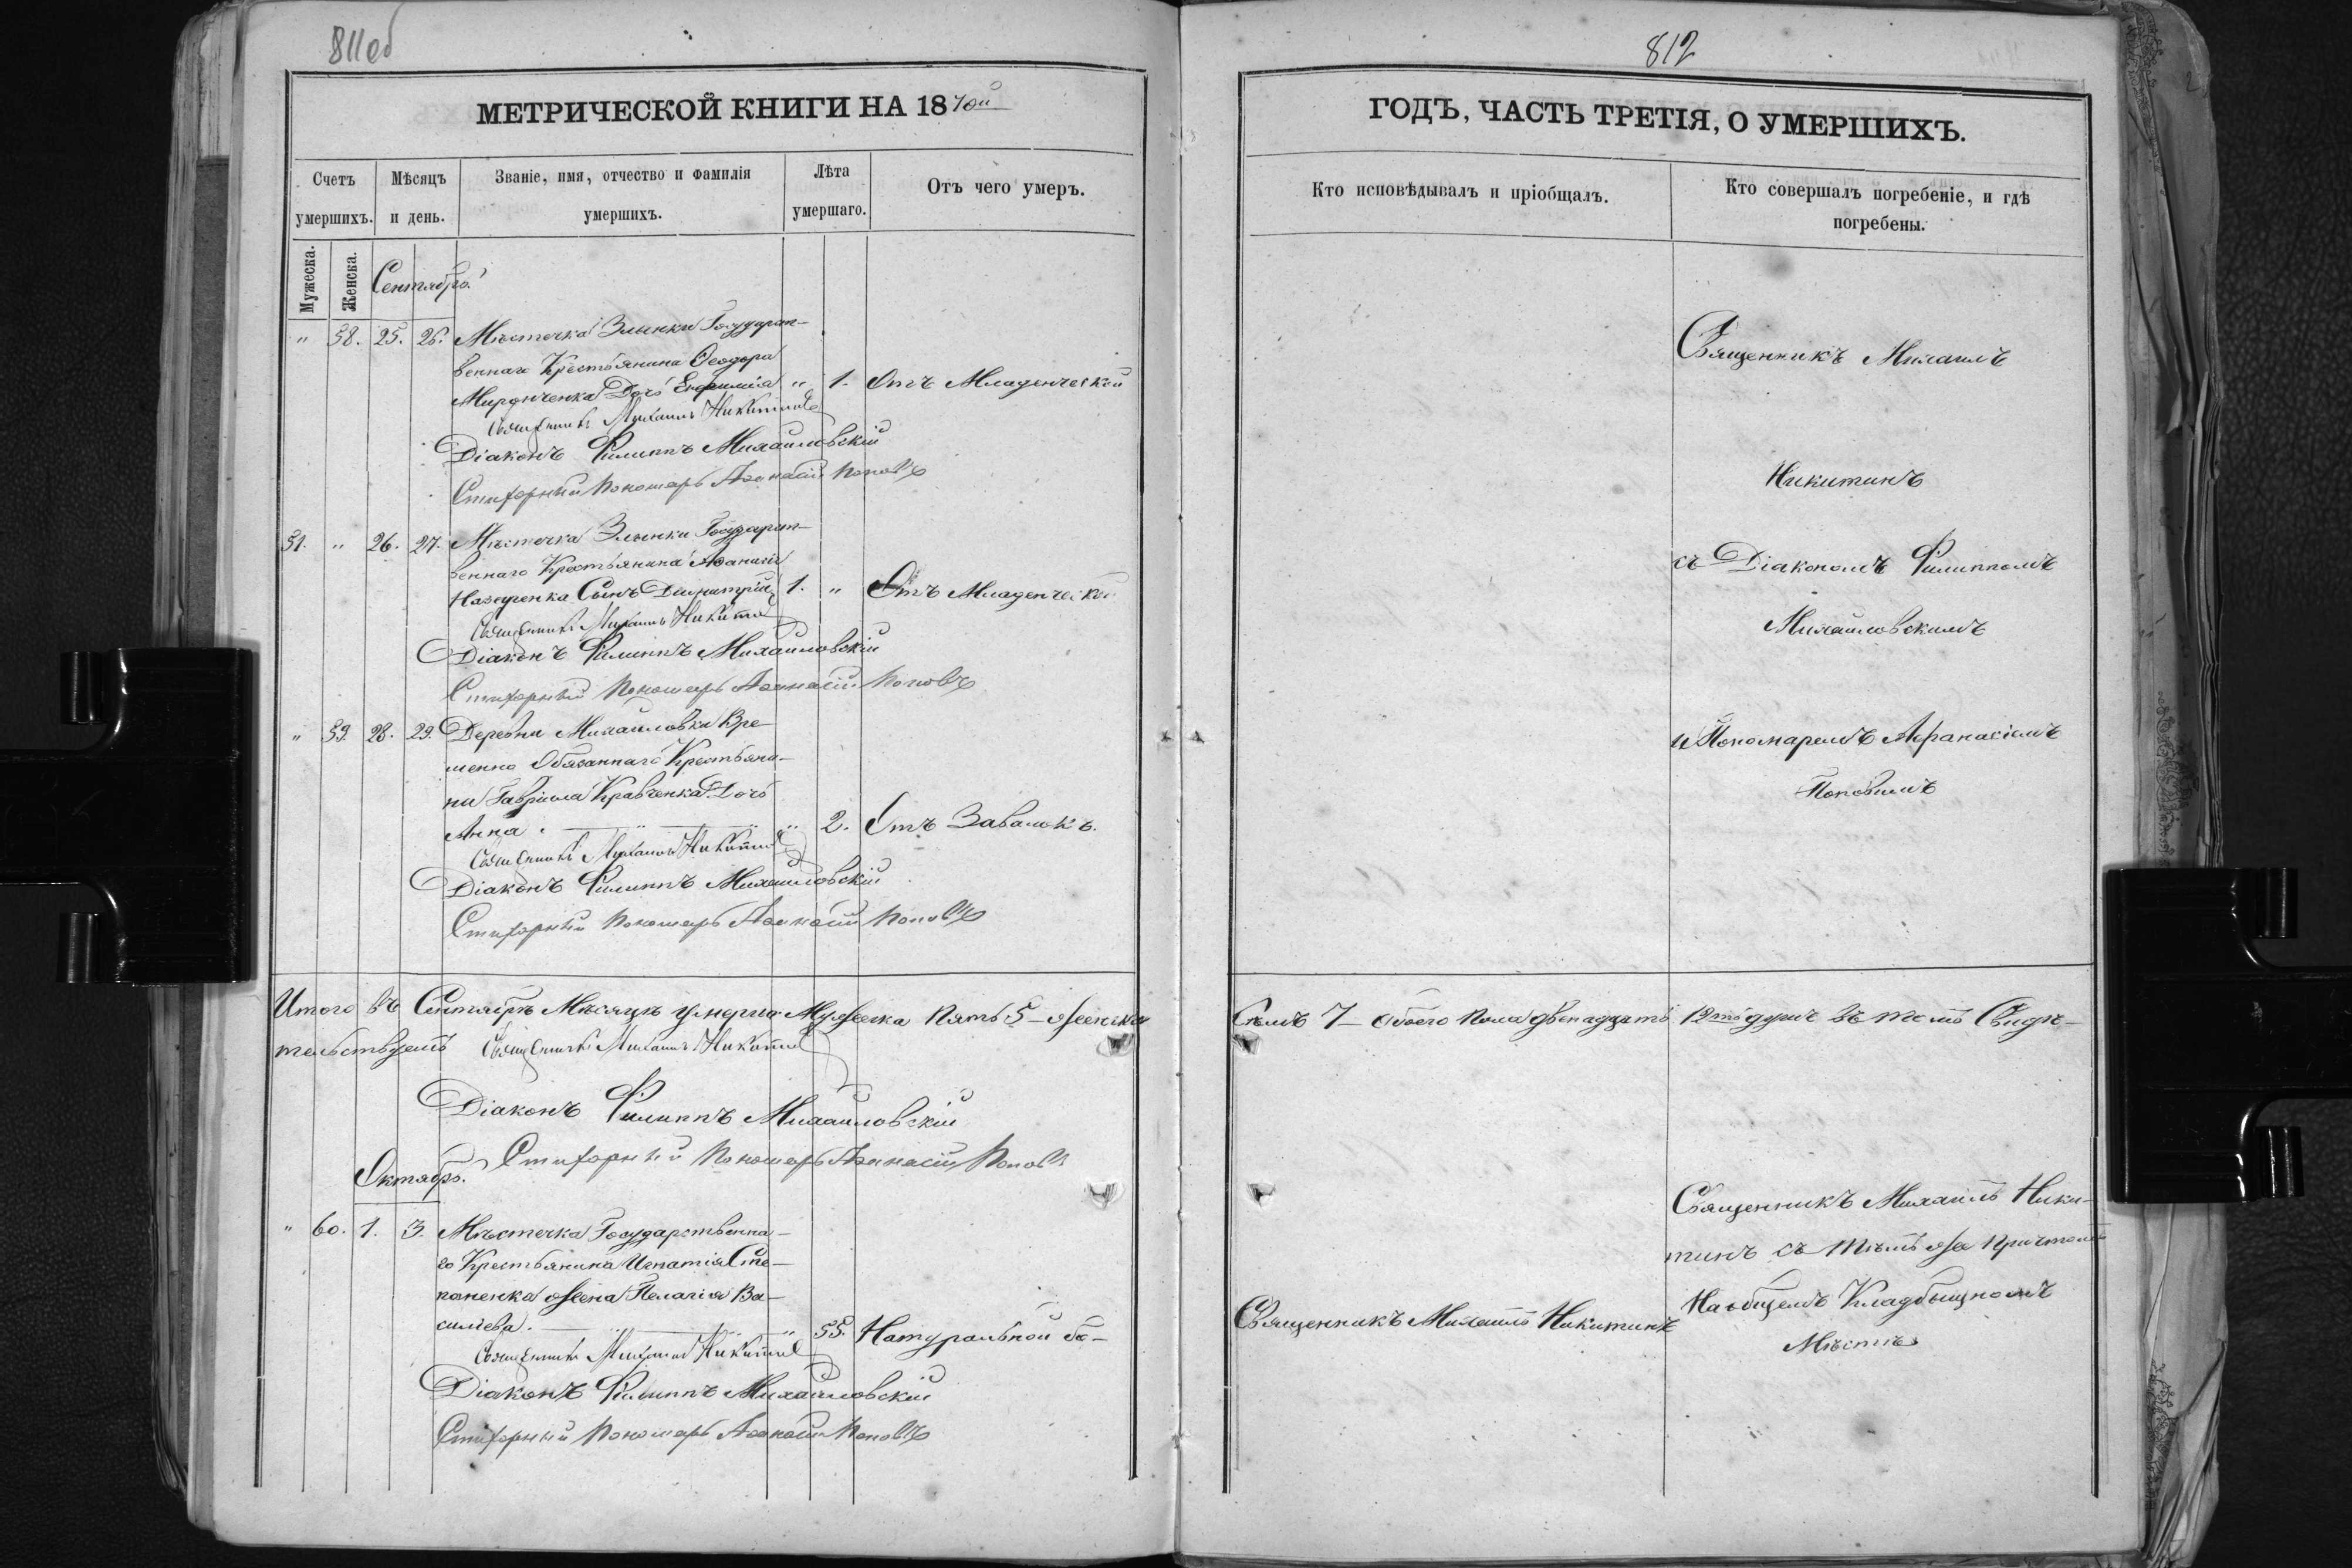 811об
МЕТРИЧЕСКОЙ КНИГИ НА 1870й
Счетъ умершихъ.
Мѣсяцъ и день.
Званіе, имя, отчество и фамилія умершихъ.
Лѣта умершаго.
Отъ чего умеръ.
Мужеска.
Женска.
Сентябрь.
" 58. 25. 26. Мѣстечка Злынки Государст-
веннаго Крестьянина Ѳеодора
Миронченка Дочь Евфимія " 1. Отъ Младенческой
Священникъ Михаилъ Никитинъ
Діаконъ Филиппъ Михайловскій
Стихарный Пономарь Аѳанасій Поповъ
51. " 26. 27. Мѣстечка Злынки Государст-
веннаго Крестьянина Аѳанасія
Назаренка Сынъ Димитрій 1. " Отъ Младенческой
Священникъ Михаилъ Никитинъ
Діаконъ Филиппъ Михайловскій
Стихарный Пономарь Аѳанасій Поповъ
" 59. 28. 29. Деревни Михайловки Вре-
менно Обязаннаго Крестьяни-
на Гавріила Кравченка Дочь
Анна. " 2. Отъ Завалокъ.
Священникъ Михаилъ Никитинъ
Діаконъ Филиппъ Михайловскій
Стихарный Пономарь Аѳанасій Поповъ
Итого въ Сентябрѣ Мѣсяцѣ умерло Мужеска Пять 5 – женска
тельствуемъ Священникъ Михаилъ Никитинъ
Діаконъ Филиппъ Михайловскій
Стихарный Пономарь Аѳанасій Поповъ
Октябрь.
" 60. 1. 3. Мѣстечка Государственна-
го Крестьянина Игнатія Сте-
паненка жена Пелагія Ва-
силіева. " 55. Натуральной бо-
Священникъ Михаилъ Никитинъ
Діаконъ Филиппъ Михайловскій
Стихарный Пономарь Аѳанасій Поповъ
812
ГОДЪ, ЧАСТЬ ТРЕТІЯ, О УМЕРШИХЪ.
Кто исповѣдывалъ и пріобщалъ.
Кто совершалъ погребеніе, и гдѣ
погребены.
Священникъ Михаилъ
Никитинъ
съ Діакономъ Филиппомъ
Михайловскимъ
и Пономаремъ Афанасіемъ
Поповымъ
Семь 7 – обоего пола двенадцать 12ть душъ въ томъ Свидѣ-
Священникъ Михаилъ Ники-
тинъ съ тѣмъ же причтомъ
На общемъ Кладбищномъ
Мѣстѣ
Священникъ Михаилъ Никитинъ